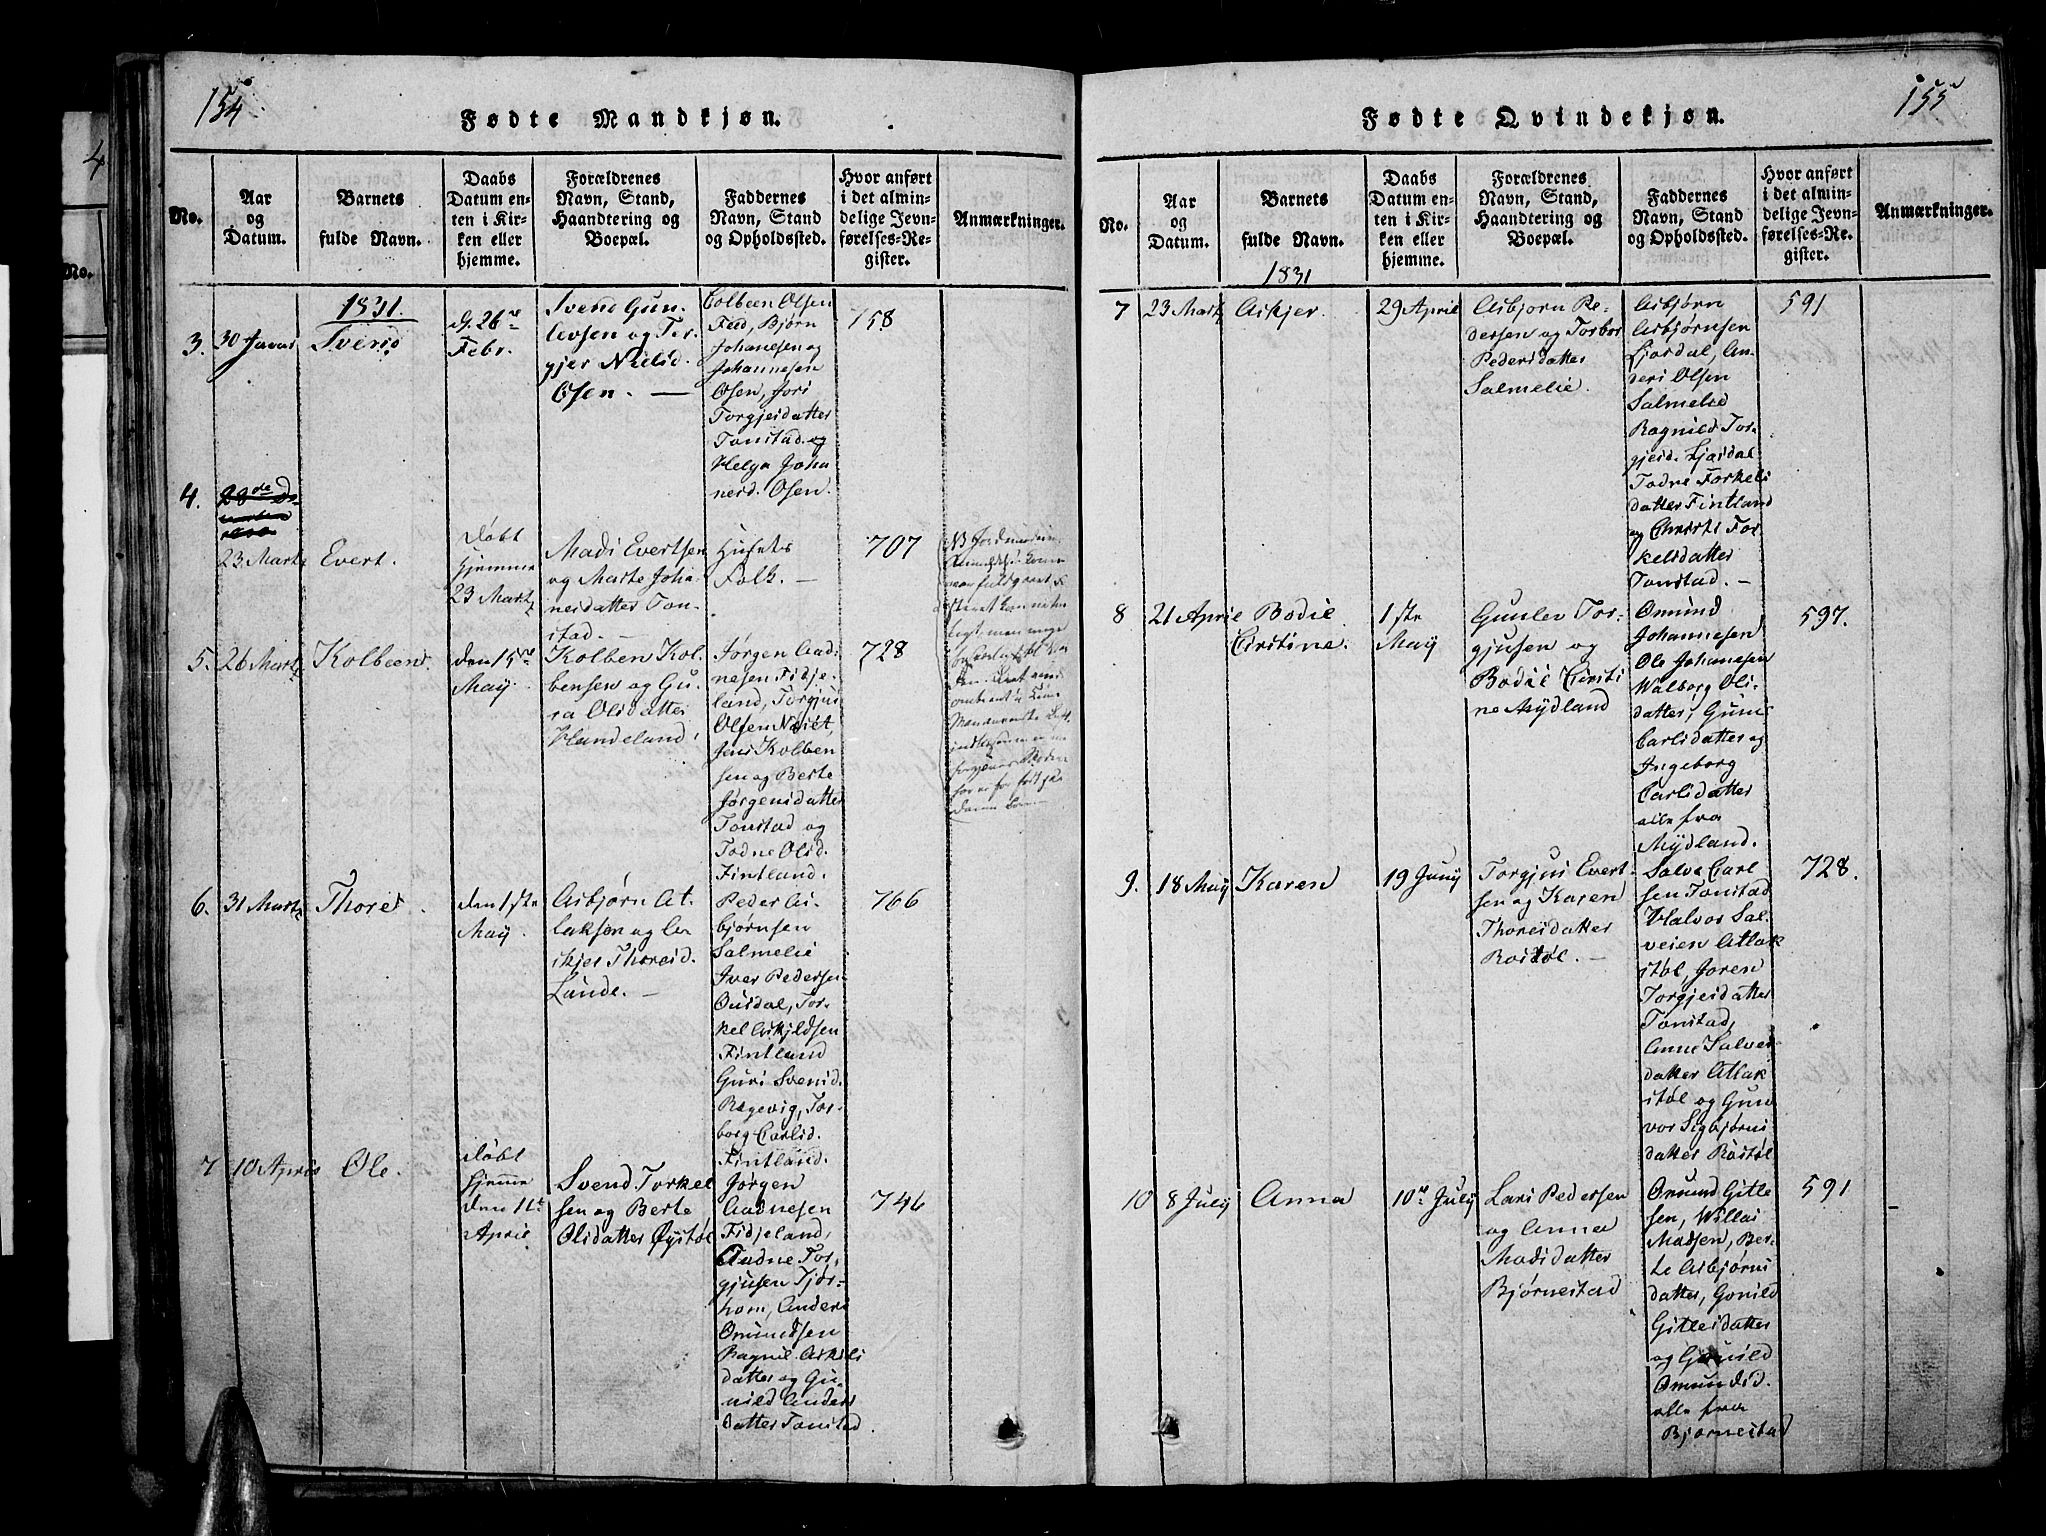 154
Fødte Mandkjøn.
No.
Aar
og
Datum.
Barnets
fulde Navn.
Daabs
Datum en-
ten i Kir-
ken eller
hjemme.
Forældrenes
Navn, Stand,
Haandtering og
Boepæl.
Faddernes
Navn, Stand
og Opholdssted.
Hvor anført
i det almin-
delige Jevn-
førelses-Re-
gister.
Anmærkninger.
1831.
3.
30 Januar
Svend
d. 26de
Febr.
Svend Gun-
levsen og Tor-
gjer Nielsd.
Osen. —
Colbeen Olsen
Fed, Bjørn
Johanesen og
Johannesen
Osen, Jori
Torgjeisdatter
Tonstad og
Helga Joha
nesd. Osen.
758
4.
23 Martz
Evert.
døbt
hjemme
23 Martz
Mads Evertsen
og Marte Joha-
nesdatter Ton-
stad. —
Husets
Folk. —
707
5.
26 Martz
Kolbeen.
den 15de
May.
Kolben Kol-
bensen og Gu-
ra Olsdatter
Handeland.
Jørgen Aad-
nesen Fidje-
land, Torgjus
Olsen Nesset,
Jens Kolben
sen og Berte
Jørgensdatter
Tonstad og
Todne Olsd.
Fintland.
728
6.
31 Martz
Thore.
den 1ste
May.
Asbjørn At-
laksen og As-
skjer Thoresd.
Lande. —
Peder As-
bjørnsen
Salmelie
Iver Pedersen
Ousdal, Tor-
kel Askjeldsen
Fintland
Guri Svensd.
Rægevig, Tor-
borg Carlsd.
Fintland.
766
7
10 April
Ole.
døbt
hjemme
den 11te
April
Svend Torkel
sen og Berte
Olsdatter Øystøl
Jørgen
Aadnesen
Fidjeland,
Aadne Tor-
gjusen Tjør-
hom, Anders
Omundsen
Ragnil Askils
datter og Gu-
nild Anders
datter Tonstad.
746
155
Fødte Qvindekjøn.
No.
Aar
og
Datum.
Barnets
fulde Navn.
Daabs
Datum en-
ten i Kir-
ken eller
hjemme.
Forældrenes
Navn, Stand,
Haandtering og
Boepæl.
Faddernes
Navn, Stand
og Opholdssted.
Hvor anført
i det almin-
delige Jevn-
førelses-Re-
gister.
Anmærkninger.
1831
7
23 Martz
Askjer.
29 April
Asbjørn Pe-
dersen og Torbor
Pedersdatter
Salmelie.
Asbjørn
Asbjørnsen
Liordal, An-
ders Olsen
Salmelie
Ragnild Tor-
gjeisd. Liosdal
Todne Torkels
datter Fintland
og Christi Tor-
kelsdatter
Tonstad. —
591
8
21 April
Bodil
Cirstine.
1ste
May
Gunlev Tor-
gjusen og
Bodil Cirsti
ne Mydland
Omund
Johannesen
Ole Johanesen
Walborg Ols-
datter, Guni
Carlsdatter og
Ingeborg
Carlsdatter
alle fra
Mydland.
597.
9.
18 May
Karen
19 Juny
Torgjus Evert-
sen og Karen
Thoresdatter
Rostøl. —
Salve Carl
sen Tonstad
Halvor Sal-
vesen Atlak
støl, Joren
Torgjeisdatter
Tonstad,
Anne Salves
datter Atlak
støl og Gun
vor Sigbjørns
datter Rostøl
728.
10
8 July
Anna
10de July
Lars Pedersen
og Anna
Madsdatter
Bjørnestad
Omund Gitle
sen, Willas
Madsen, Ber-
te Asbjørns
datter, Gonild
Gitlesdatter
og Gunild
Omundsd.
alle fra
Bjørnestad
591